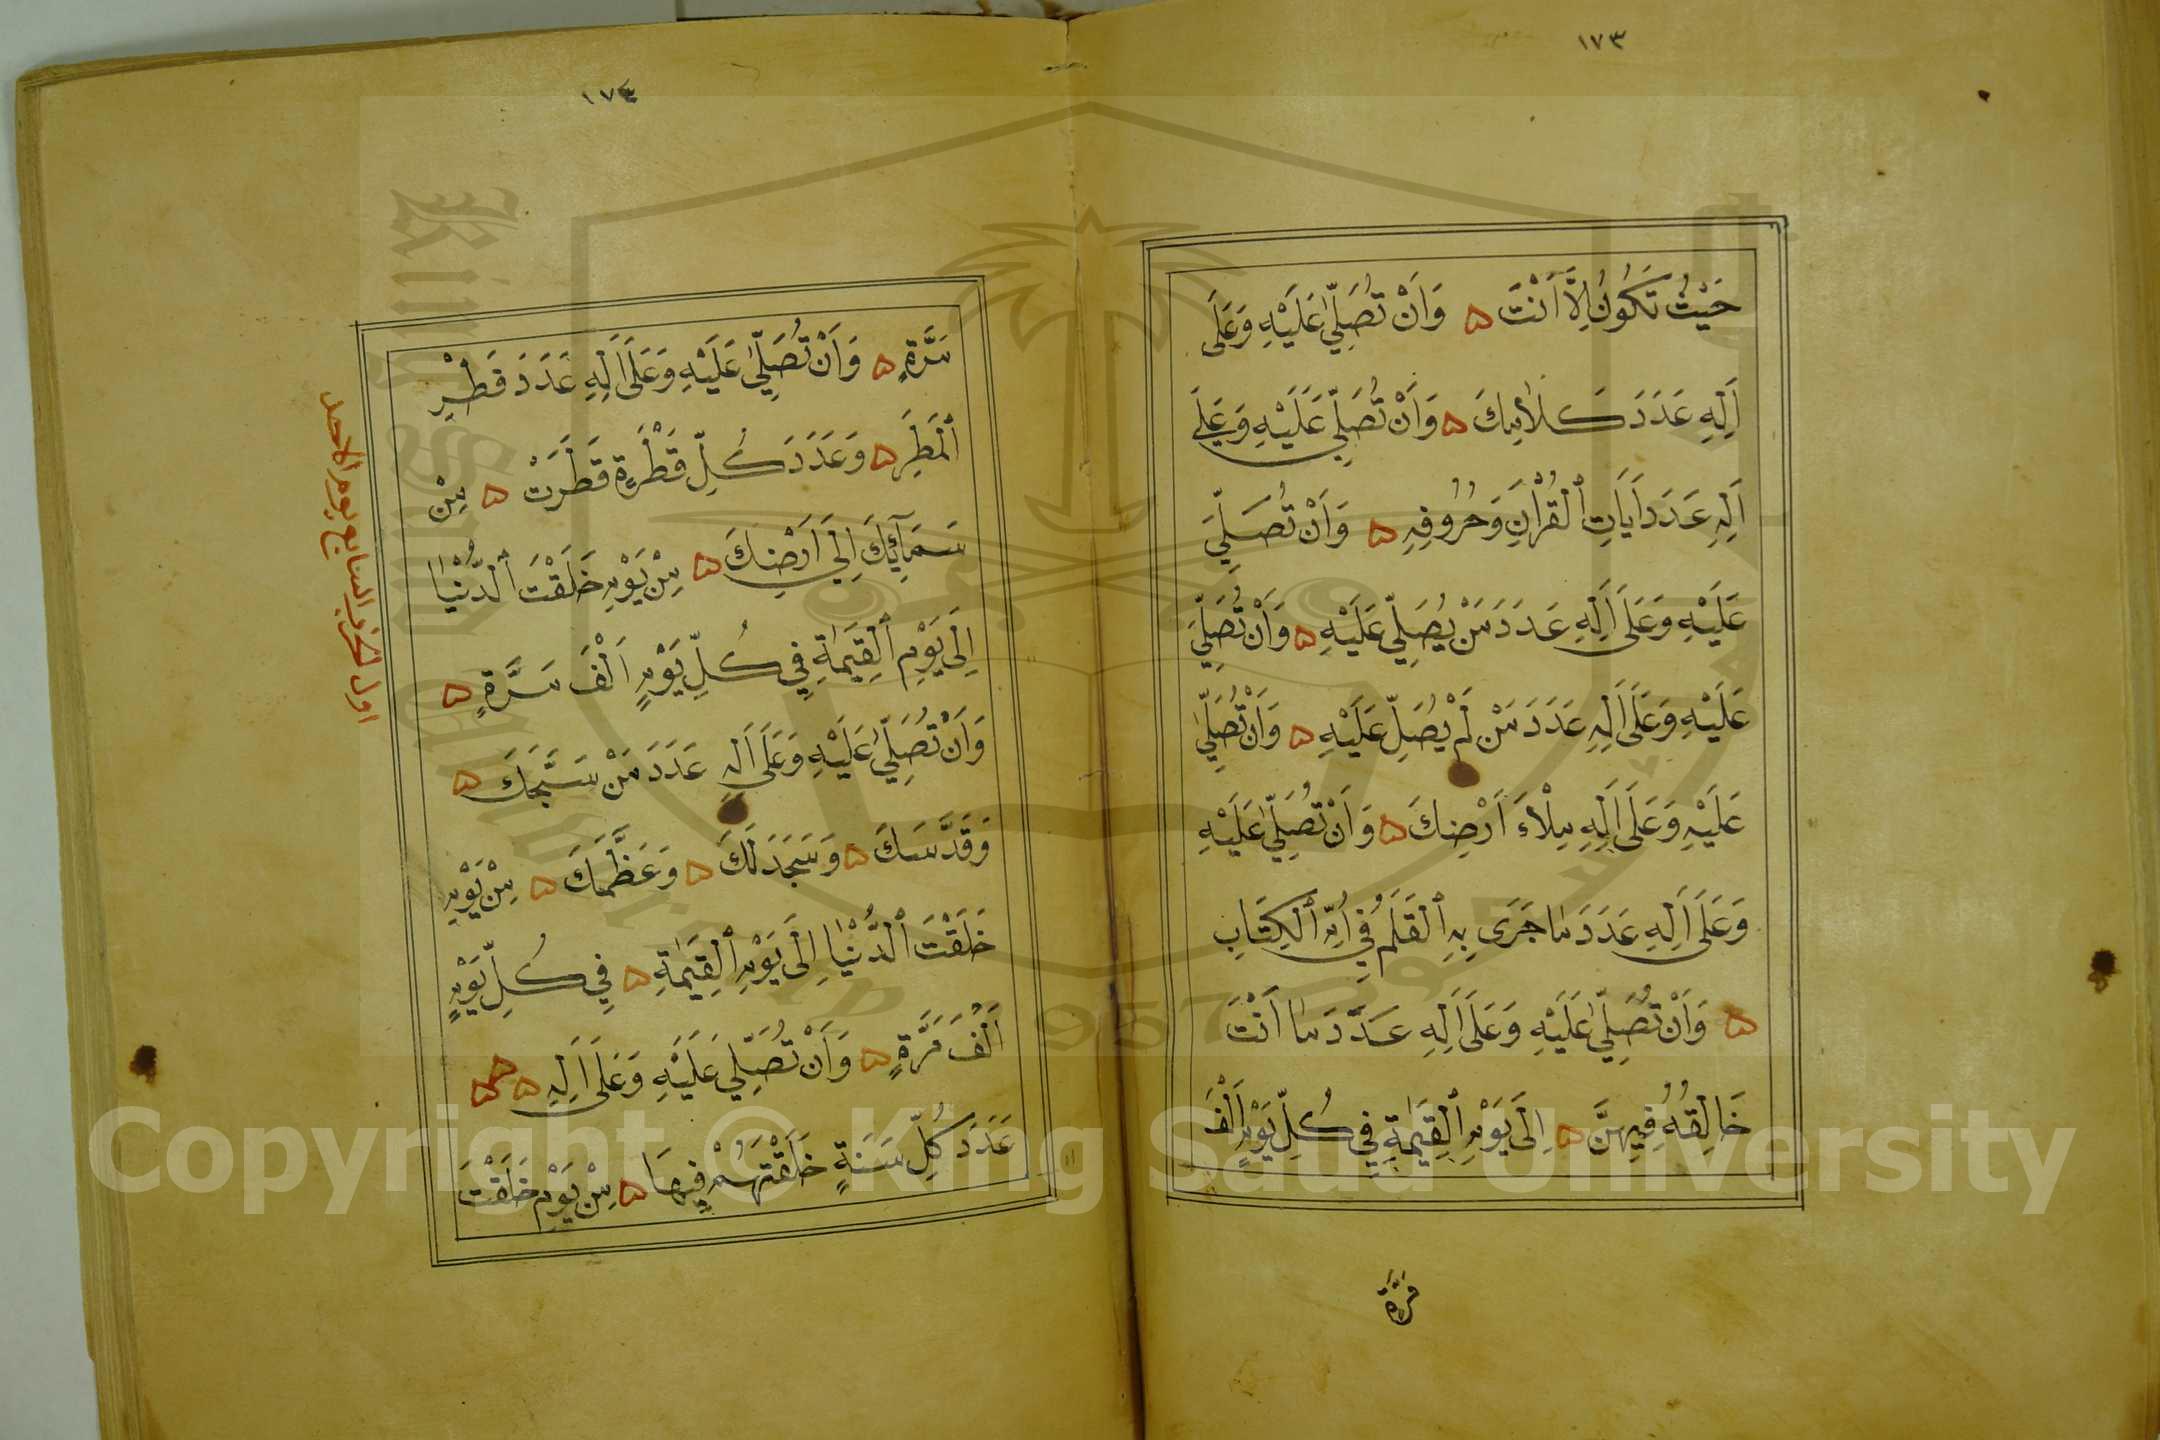 ١٧٣
حَيْثُ تَكُونُ اِلَّا اَنْتَ ۵ وَاَنْ تُصَلِّيَ عَلَيْهِ وَعَلَى
اٰلِهِ عَدَدَ كَلَامِكَ ۵ وَاَنْ تُصَلِّيَ عَلَيْهِ وَعَلَى
اٰلِهِ عَدَدَ اٰيَاتِ ٱلْقُرْاٰنِ وَحُرُوفِهِ ۵ وَاَنْ تُصَلِّيَ
عَلَيْهِ وَعَلَى اٰلِهِ عَدَدَ مَنْ يُصَلِّي عَلَيْهِ ۵ وَاَنْ تُصَلِّيَ
عَلَيْهِ وَعَلَى اٰلِهِ عَدَدَ مَنْ لَمْ يُصَلِّ عَلَيْهِ ۵ وَاَنْ تُصَلِّيَ
عَلَيْهِ وَعَلَى اٰلِهِ مِلْاءَ اَرْضِكَ ۵ وَاَنْ تُصَلِّيَ عَلَيْهِ
وَعَلَى اٰلِهِ عَدَدَ مَا جَرَى بِهِ ٱلْقَلَمُ فِي اُمِّ ٱلْكِتَابِ
۵ وَاَنْ تُصَلِّيَ عَلَيْهِ وَعَلَى اٰلِهِ عَدَدَ مَا اَنْتَ
خَالِقُهُ فِيهِنَّ ۵ اِلَى يَوْمِ ٱلْقِيٰمَةِ فِي كُلِّ يَوْمٍ اَلْفَ
مَرَّةٍ
١٧٤
مَرَّةٍ ۵ وَاَنْ تُصَلِّيَ عَلَيْهِ وَعَلَى اٰلِهِ عَدَدَ قَطْرِ
ٱلْمَطَرِ ۵ وَعَدَدَ كُلِّ قَطْرَةٍ قَطَرَتْ ۵ مِنْ
سَمَآئِكَ اِلَى اَرْضِكَ ۵ مِنْ يَوْمِ خَلَقْتَ ٱلدُّنْيَا
اِلَى يَوْمِ ٱلْقِيٰمَةِ فِي كُلِّ يَوْمٍ اَلْفَ مَرَّةٍ ۵
وَاَنْ تُصَلِّيَ عَلَيْهِ وَعَلَى اٰلِهِ عَدَدَ مَنْ سَبَّحَكَ ۵
وَقَدَّسَكَ ۵ وَسَجَدَ لَكَ ۵ وَعَظَّمَكَ ۵ مِنْ يَوْمِ
خَلَقْتَ ٱلدُّنْيَا اِلَى يَوْمِ ٱلْقِيٰمَةِ ۵ فِي كُلِّ يَوْمٍ
اَلْفَ مَرَّةٍ ۵ وَاَنْ تُصَلِّيَ عَلَيْهِ وَعَلَى اٰلِهِ ۵ ۵۵
عَدَدَ كُلِّ سَنَةٍ خَلَقْتَهُمْ فِيهَا ۵ مِنْ يَوْمِ خَلَقْتَ
اول الحزب السابع يوم الاحد
Copyright © King Saud University
King Saud University
1957